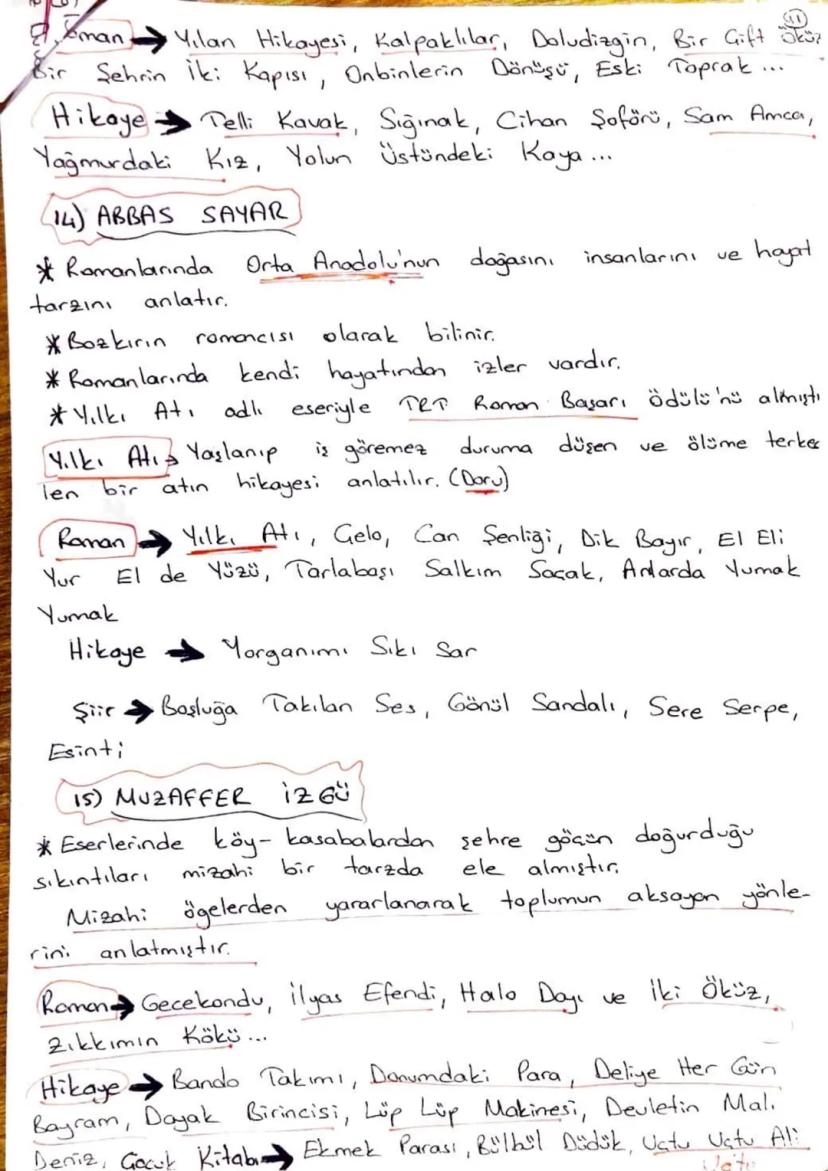 11
Roman → Yılan Hikayesi, Kalpaklılar, Doludizgin, Bir Çift Öküz
Bir Şehrin İki Kapısı, Onbinlerin Dönüşü, Eski Toprak ...
Hikaye → Telli Kavak, Sığınak, Cihan Şoförü, Sam Amca,
Yağmurdaki Kız, Yolun Üstündeki Kaya ...
14) ABBAS SAYAR
* Romanlarında Orta Anadolu'nun doğasını insanlarını ve hayat
tarzını anlatır.
* Bozkırın romancısı olarak bilinir.
* Romanlarında kendi hayatından izler vardır.
* Yılkı Atı adlı eseriyle TRT Roman Başarı Ödülü'nü almıştı
Yılkı Atı → Yaşlanıp iş göremez duruma düşen ve ölüme terke
len bir atın hikayesi anlatılır. (Doru)
Roman → Yılkı Atı, Çelo, Can Şenliği, Dik Bayır, El Eli
Yur El de Yüzü, Tarlabaşı Salkım Saçak, Anlarda Yumak
Yumak
Hikaye → Yorganımı Sıkı Sar
Şiir → Boşluğa Takılan Ses, Gönül Sandalı, Sere Serpe,
Esinti
15) MUZAFFER İZGÜ
* Eserlerinde köy-kasabalardan şehre göçün doğurduğu
sıkıntıları mizahi bir tarzda ele almıştır.
Mizahi ögelerden yararlanarak toplumun aksayan yönle-
rini anlatmıştır.
Roman → Gecekondu, İlyas Efendi, Halo Dayı ve İki Öküz,
Zıkkımın Kökü ...
Hikaye → Bando Takımı, Donumdaki Para, Deliye Her Gün
Bayram, Dayak Birincisi, Lüp Lüp Makinesi, Devletin Malı
Deniz, Çocuk Kitabı → Ekmek Parası, Bülbül Düdük, Uçtu Uçtu Ali
Uçtu